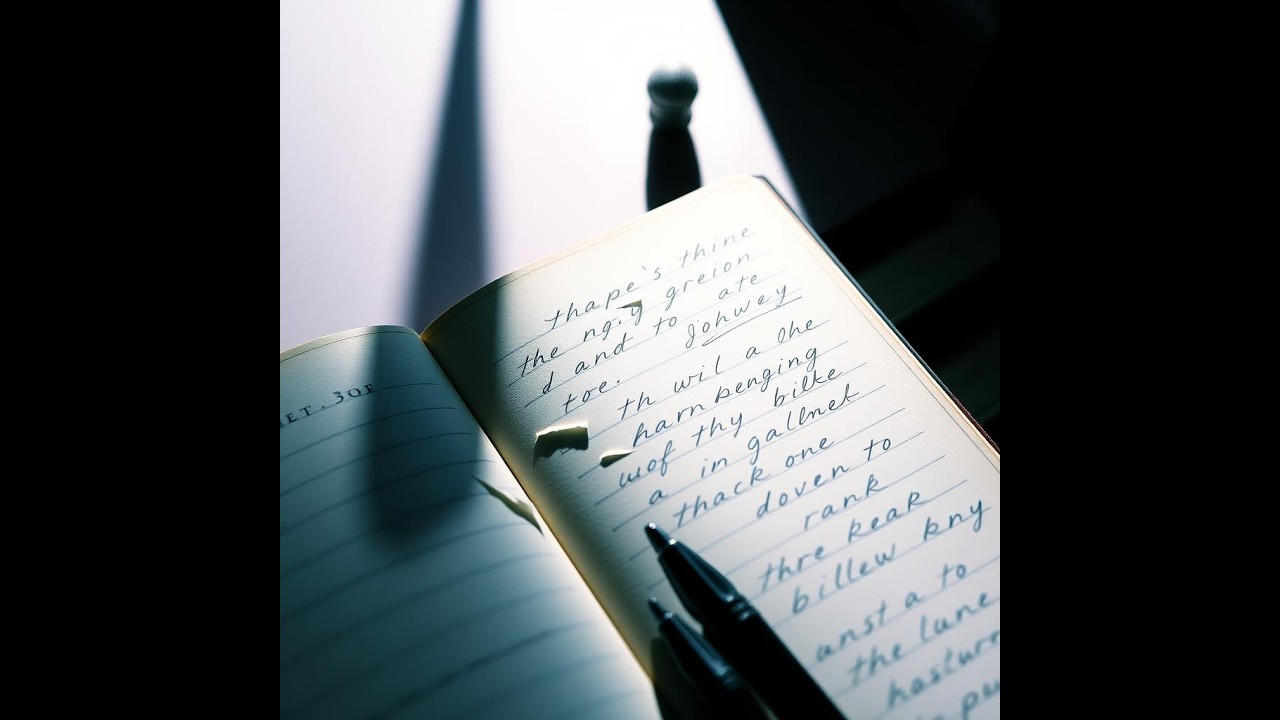 ET. 30F
thape's thine
the ng.y greion
d and to ate
toe. johwey
th wil a ohe
harn penging
wof thy bilke
a in gallnet
thack one
doven to
rank
thre keak
billew kny
unst a to
the lune